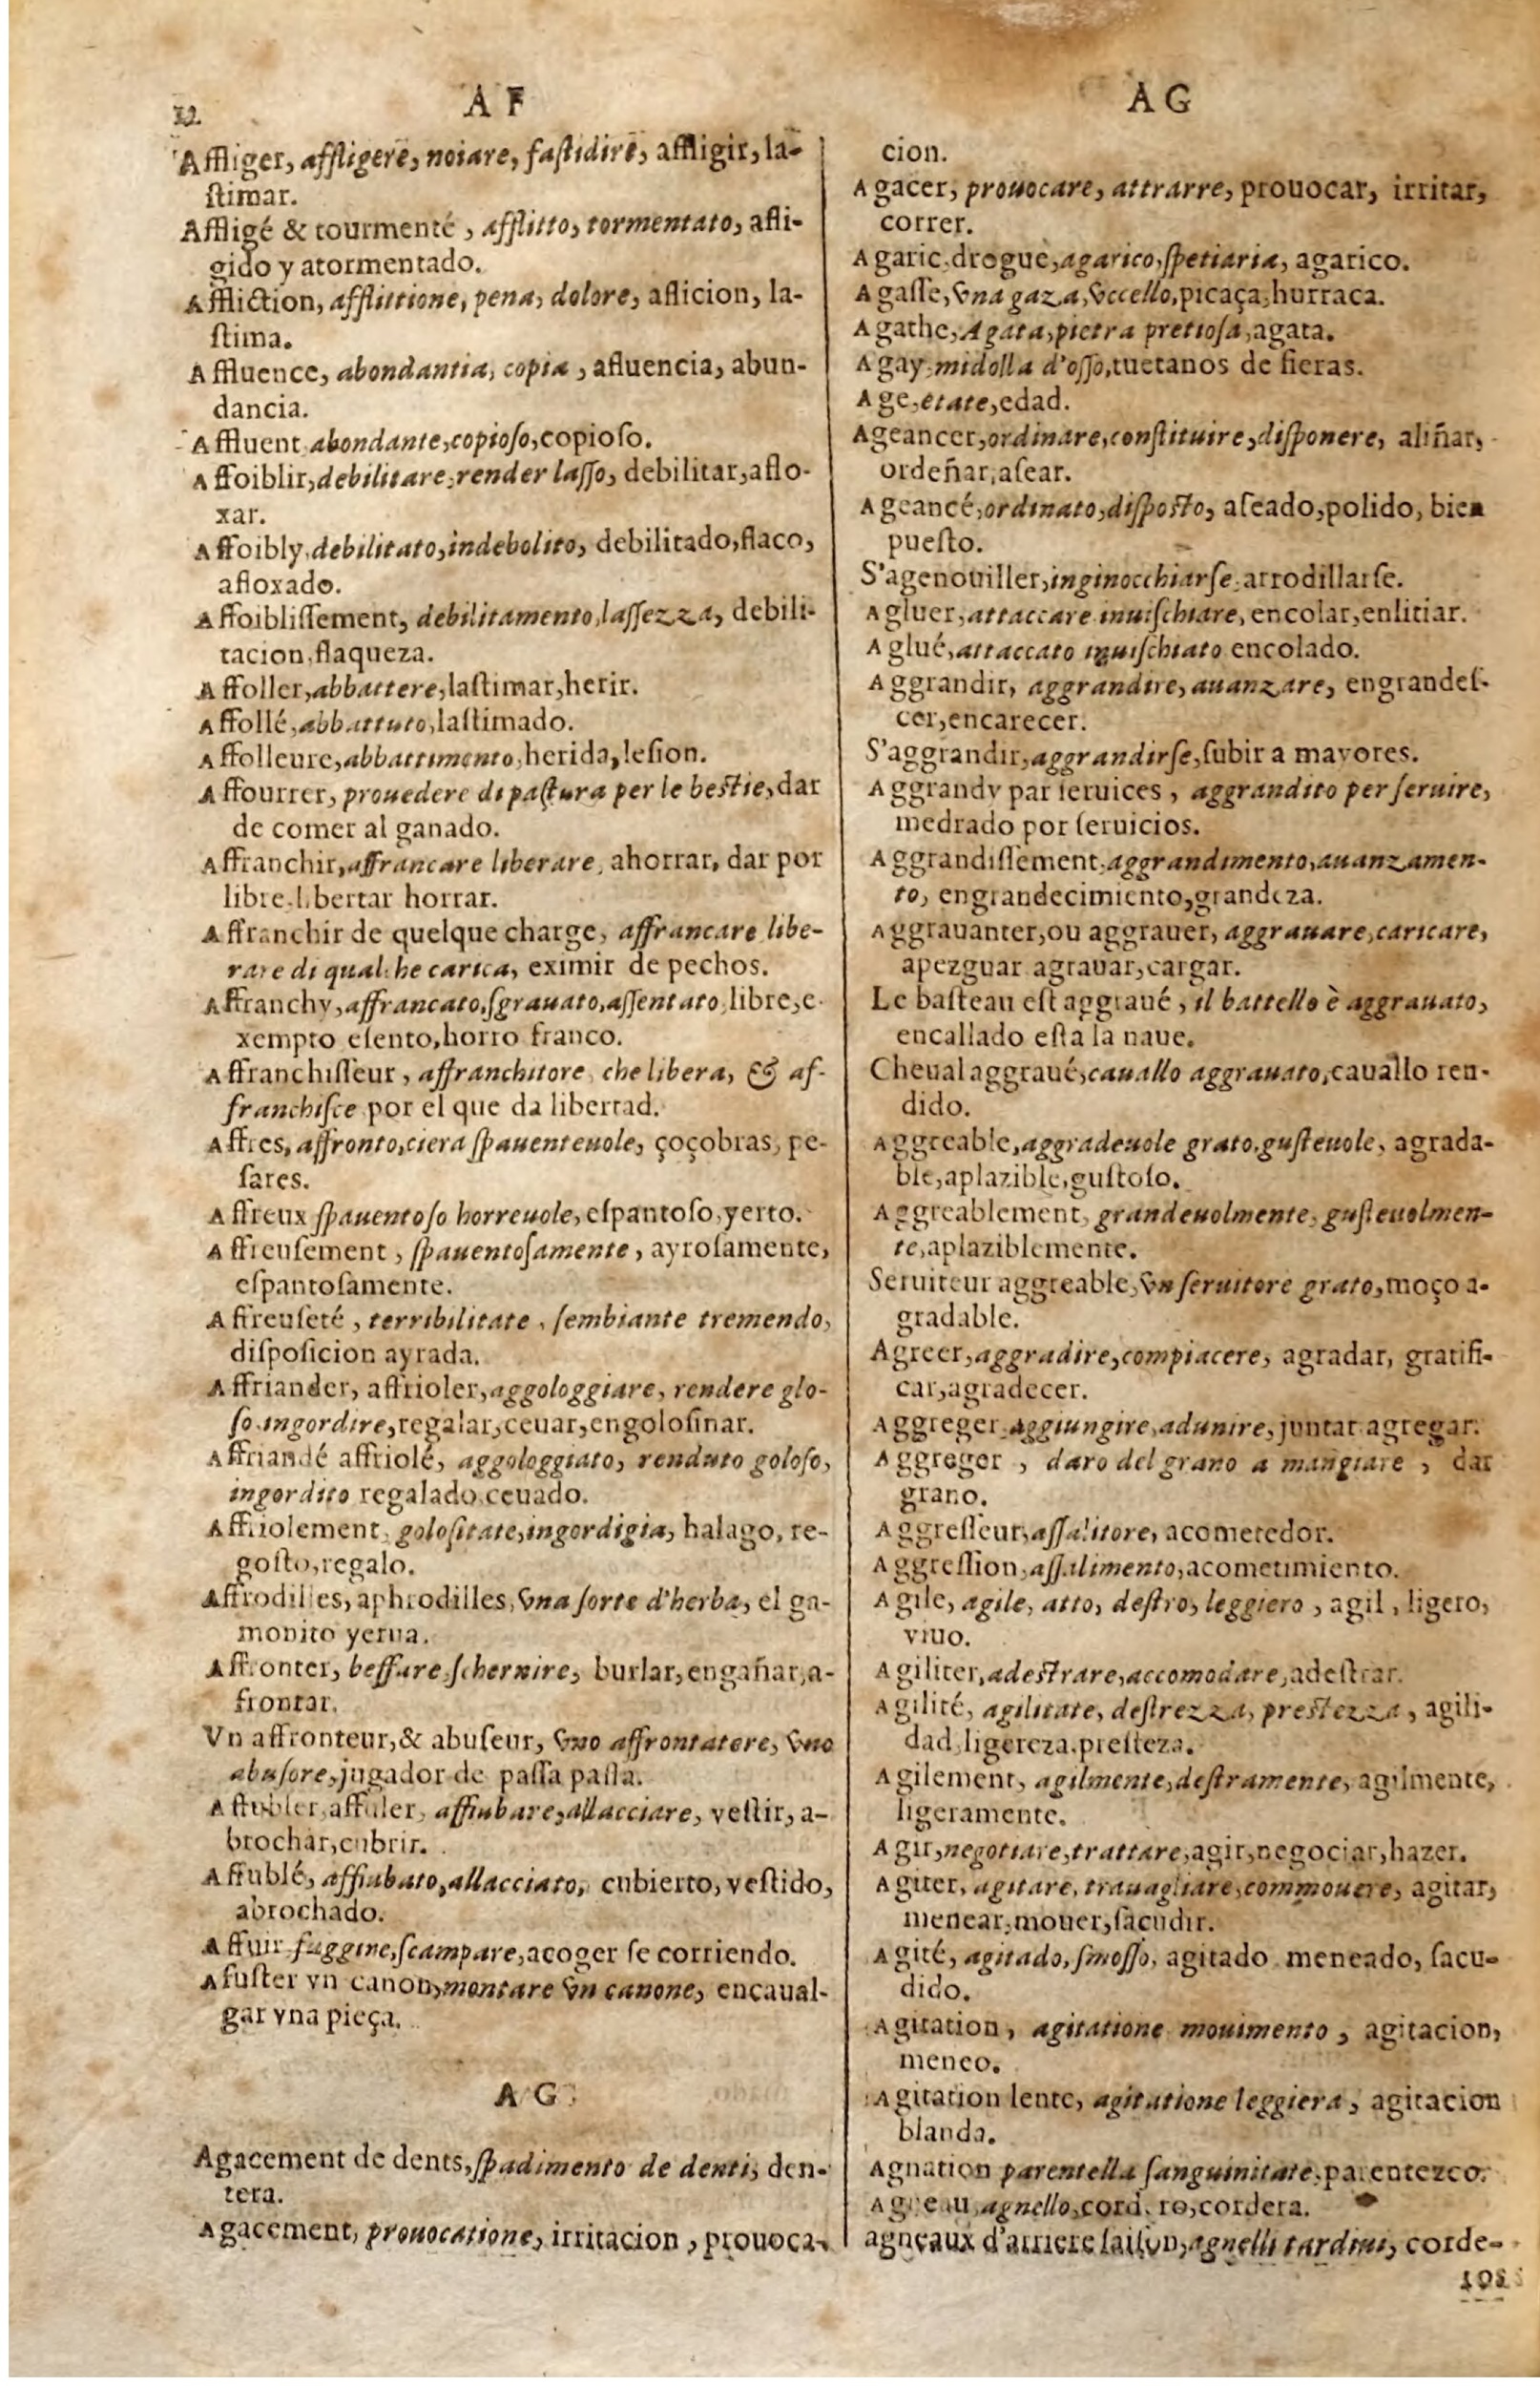 22
A F
Affliger, affligere, noiare, faſtidire, affligir, la-
ſtimar.
Affligé & tourmenté, afflitto, tormentato, afli-
gido y atormentado.
Affliction, afflittione, pena, dolore, aflicion, la-
ſtima.
Affluence, abondantia, copia, afluencia, abun-
dancia.
Affluent, abondante, copioſo, copioſo.
Affoiblir, debilitare, render laſſo, debilitar, aflo-
xar.
Affoibly, debilitato, indebolito, debilitado, flaco,
afloxado.
Affoibliſſement, debilitamento, laſſezza, debili-
tacion, flaqueza.
Affoller, abbattere, laſtimar, herir.
Affollé, abbattuto, laſtimado.
Affolleure, abbattimento, herida, leſion.
Affourrer, prouedere di paſtura per le beſtie, dar
de comer al ganado.
Affranchir, affrancare liberare, ahorrar, dar por
libre, libertar horrar.
Affranchir de quelque charge, affrancare libe-
rare di qualche carica, eximir de pechos.
Affranchy, affrancato, ſgrauato, aſſentato, libre, e-
xempto eſento, horro franco.
Affranchiſſeur, affranchitore, che libera, & af-
franchiſce por el que da libertad.
Affres, affronto, ciera ſpauenteuole, çoçobras, pe-
ſares.
Affreux ſpauentoſo horreuole, eſpantoſo, yerto.
Affreuſement, ſpauentoſamente, ayroſamente,
eſpantoſamente.
Affreuſeté, terribilitate, ſembiante tremendo,
diſpoſicion ayrada.
Affriander, affrioler, aggologgiare, rendere glo-
ſo ingordire, regalar, ceuar, engoloſinar.
Affriandé affriolé, aggologgiato, renduto goloſo,
ingordito regalado, ceuado.
Affriolement, goloſitate, ingordigia, halago, re-
goſto, regalo.
Affrodilles, aphrodilles, vna ſorte d'herba, el ga-
monito yerua.
Affronter, beffare, ſchernire, burlar, engañar, a-
frontar.
Vn affronteur, & abuſeur, vno affrontatore, vno
abuſore, jugador de paſſa paſſa.
Affubler, affuler, affiubare, allacciare, veſtir, a-
brochar, cubrir.
Affublé, affiubato, allacciato, cubierto, veſtido,
abrochado.
Affuir fuggire, ſcampare, acoger ſe corriendo.
Afuſter vn canon, montare vn canone, encaual-
gar vna pieça.
A G
Agacement de dents, ſpadimento de denti, den-
tera.
Agacement, prouocatione, irritacion, prouoca-
A G
cion.
Agacer, prouocare, attrarre, prouocar, irritar,
correr.
Agaric, drogue, agarico, ſpetiaria, agarico.
Agaſſe, vna gaza, vccello, picaça, hurraca.
Agathe, Agata, pietra pretioſa, agata.
Agay, midolla d'oſſo, tuetanos de fieras.
Age, etate, edad.
Ageancer, ordinare, conſtituire, diſponere, aliñar,
ordeñar, aſear.
Ageancé, ordinato, diſpoſto, aſeado, polido, bien
pueſto.
S'agenouiller, inginocchiarſe, arrodillarſe.
Agluer, attaccare inuiſchiare, encolar, enlitiar.
Aglué, attaccato inuiſchiato encolado.
Aggrandir, aggrandire, auanzare, engrandeſ-
cer, encarecer.
S'aggrandir, aggrandirſe, ſubir a mayores.
Aggrandy par ſeruices, aggrandito per ſeruire,
medrado por ſeruicios.
Aggrandiſſement, aggrandimento, auanzamen-
to, engrandecimiento, grandeza.
Aggrauanter, ou aggrauer, aggrauare, caricare,
apezguar agrauar, cargar.
Le baſteau eſt aggraué, il battello è aggrauato,
encallado eſta la naue.
Cheual aggraué, cauallo aggrauato, cauallo ren-
dido.
Aggreable, aggradeuole grato, guſteuole, agrada-
ble, aplazible, guſtoſo.
Aggreablement, grandeuolmente, guſteuolmen-
te, aplaziblemente.
Seruiteur aggreable, vn ſeruitore grato, moço a-
gradable.
Agreer, aggradire, compiacere, agradar, gratifi-
car, agradecer.
Aggreger, aggiungire, adunire, juntar agregar.
Aggreger, daro del grano a mangiare, dar
grano.
Aggreſſeur, aſſalitore, acometedor.
Aggreſſion, aſſalimento, acometimiento.
Agile, agile, atto, deſtro, leggiero, agil, ligero,
viuo.
Agiliter, adeſtrare, accomodare, adeſtrar.
Agilité, agilitate, deſtrezza, preſtezza, agili-
dad, ligereza, preſteza.
Agilement, agilmente, deſtramente, agilmente,
ligeramente.
Agir, negotiare, trattare, agir, negociar, hazer.
Agiter, agitare, trauagliare, commouere, agitar,
menear, mouer, ſacudir.
Agité, agitado, ſmoſſo, agitado meneado, ſacu-
dido.
Agitation, agitatione mouimento, agitacion,
meneo.
Agitation lente, agitatione leggiera, agitacion
blanda.
Agnation parentella ſanguinitate, parentezco.
Agneau, agnello, cordero, cordera.
agneaux d'arriere ſaiſon, agnelli tardiui, corde-
ros